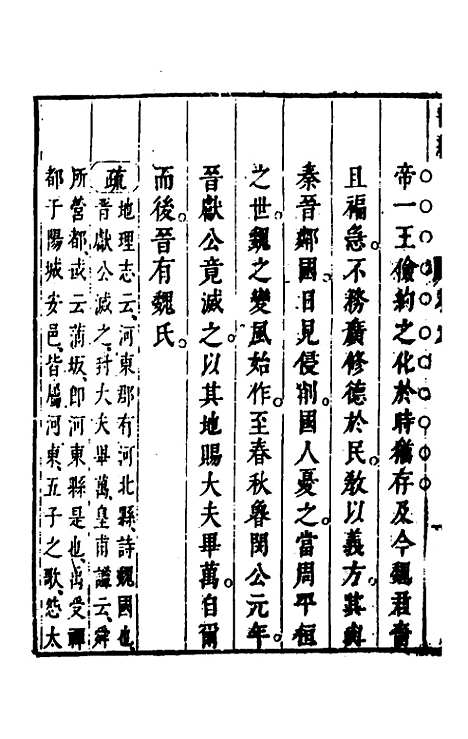 帝一王儉約之化於時猶存及今魏君嗇
且褊急。不務廣修德於民。敎以義方。其與
秦晉鄰國。日見侵削。國人憂之。當周平桓
之世。魏之變風始作。至春秋魯閔公元年。
晉獻公竟滅之。以其地賜大夫畢萬。自爾
而後。晉有魏氏。
疏 地理志云、河東郡有河北縣、詩魏國也、
晉獻公滅之、封大夫畢萬、皇甫謐云、舜
所營都、或云蒲坂、卽河東縣是也、禹受禪
都于陽城安邑、皆屬河東、五子之歌、怨太